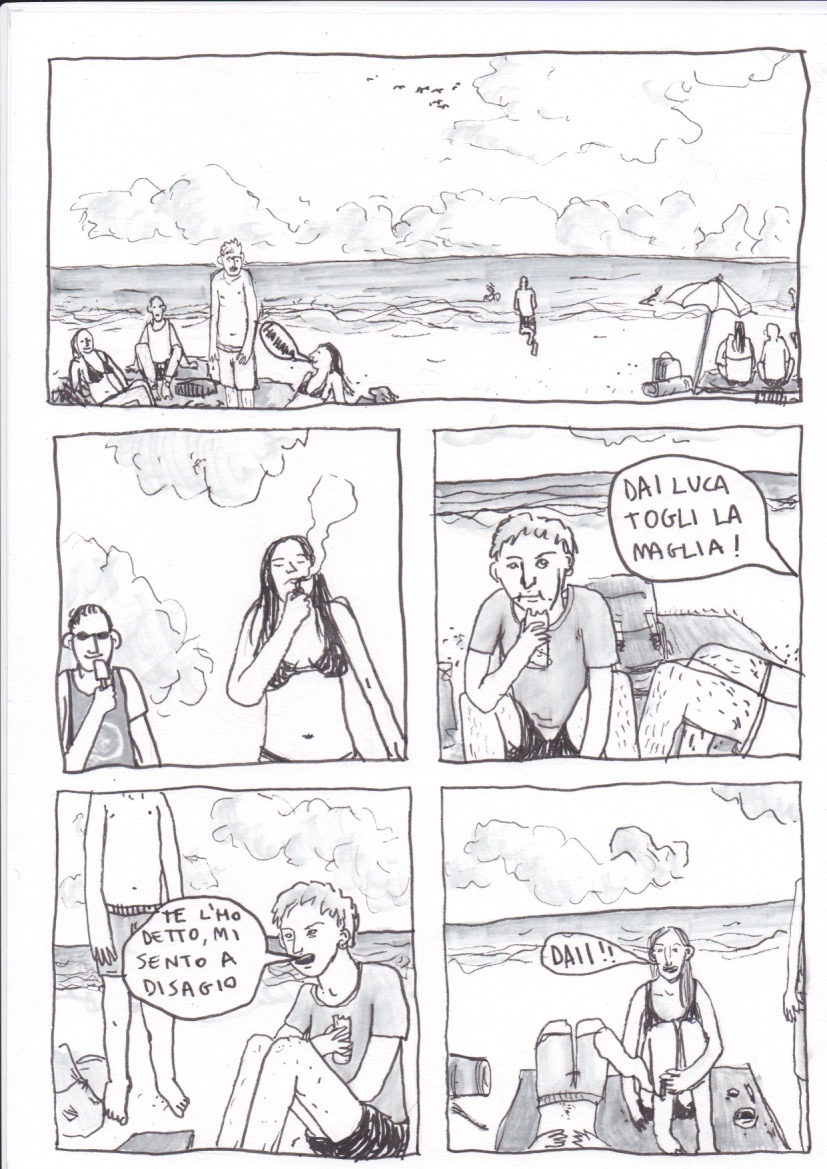 HAHAHA
DAI LUCA
TOGLI LA
MAGLIA!
TE L'HO
DETTO, MI
SENTO A
DISAGIO
DAII!!